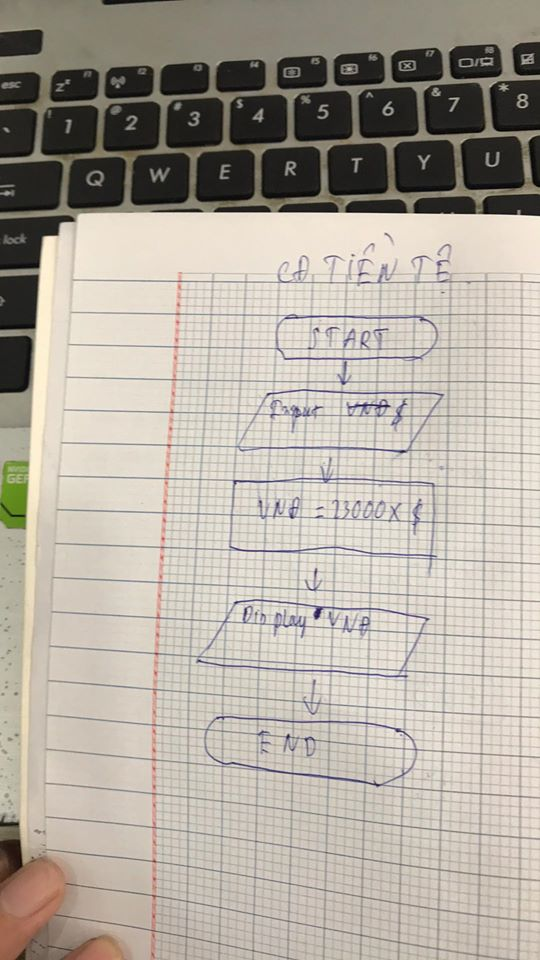 esc f1 f2 f3 f4 f5 f6 f7 f8
! 1 @ 2 # 3 $ 4 % 5 ^ 6 & 7 * 8
Q W E R T Y U
lock
NVIDIA
GEF
CĐ TIỀN TỆ
START
Input VNĐ $
VNĐ = 23000 x $
Display VNĐ
END